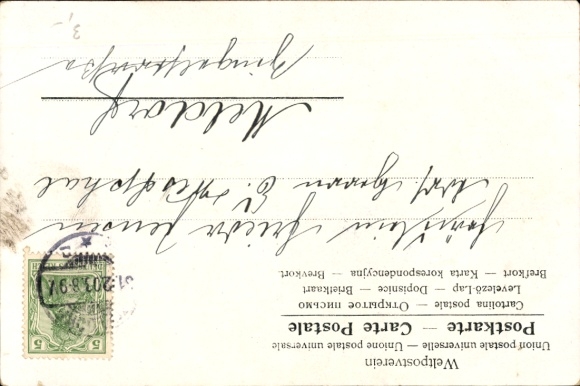 Weltpostverein
Union postale universelle — Unione postale universale
Postkarte — Carte Postale
Cartolina postale — Открытое письмо
Levelező-Lap — Dopisnice — Briefkaart
Brefkort — Karta korespondencyjna — Brevkort
Fräulein Frieda Jensen
Adr. Herrn C. Westphal
Meldorf
Zingelstraße
5
3,-